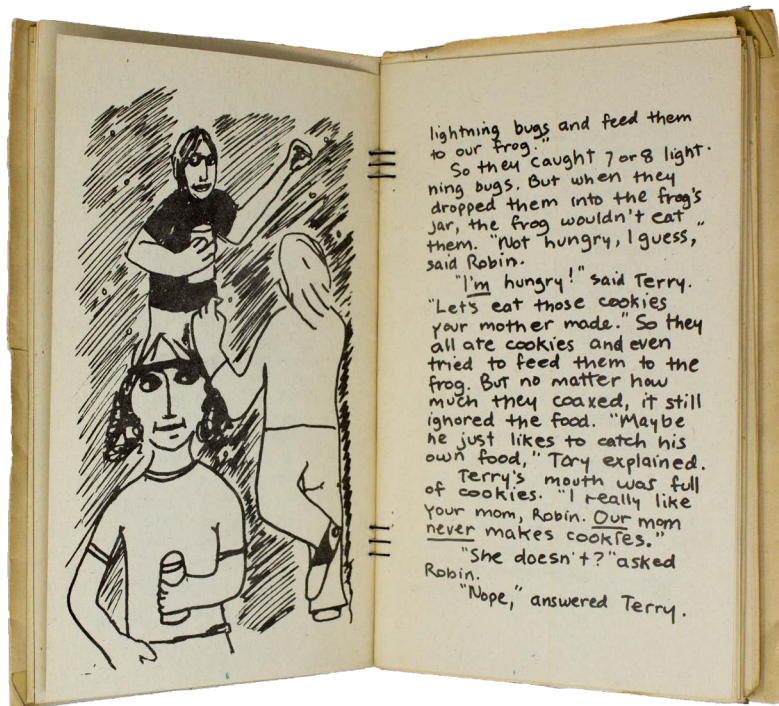 lightning bugs and feed them
to our frog."
So they caught 7 or 8 light-
ning bugs. But when they
dropped them into the frog's
jar, the frog wouldn't eat
them. "Not hungry, I guess,"
said Robin.
"I'm hungry!" said Terry.
"Let's eat those cookies
your mother made." So they
all ate cookies and even
tried to feed them to the
frog. But no matter how
much they coaxed, it still
ignored the food. "Maybe
he just likes to catch his
own food," Tory explained.
Terry's mouth was full
of cookies. "I really like
your mom, Robin. Our mom
never makes cookies."
"She doesn't?" asked
Robin.
"Nope," answered Terry.